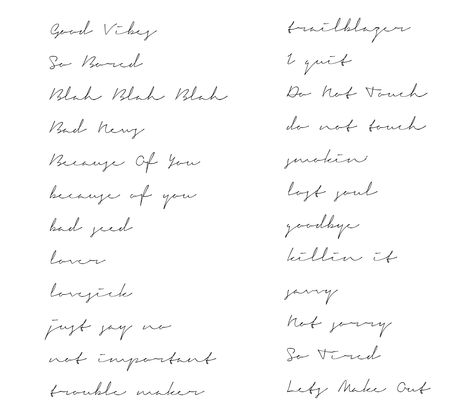 Good Vibes
So Bored
Blah Blah Blah
Bad News
Because Of You
because of you
bad seed
lover
lovesick
just say no
not important
trouble maker
trailblazer
I quit
Do Not Touch
do not touch
smokin
lost soul
goodbye
killin it
sorry
Not sorry
So Tired
Lets Make Out